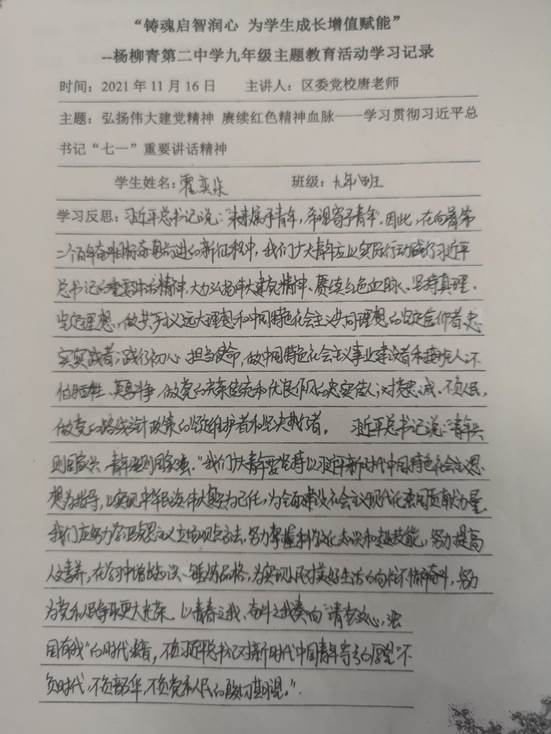 “铸魂启智润心 为学生成长增值赋能”
--杨柳青第二中学九年级主题教育活动学习记录
时间：2021年11月16日 主讲人：区委党校唐老师
主题：弘扬伟大建党精神 赓续红色精神血脉——学习贯彻习近平总
书记“七一”重要讲话精神
学生姓名： 班级：九年八班
学习反思：习近平总书记说：“未来属于青年，希望寄予青年”。因此，在向着第
二个百年奋斗目标奋勇前进的新征程中，我们广大青年应以实际行动践行习近平
总书记的重要讲话精神，大力弘扬伟大建党精神、赓续红色血脉、坚持真理、
坚定理想，做共产主义远大理想和中国特色社会主义共同理想的坚定信仰者、忠
实实践者；践行初心、担当使命，做中国特色社会主义事业建设者和接班人；不
怕牺牲、英勇斗争，做党的光荣传统和优良作风的忠实传人；对党忠诚、不负人民，
做党的路线方针政策的坚定维护者和坚决执行者。 习近平总书记说：“青年兴
则国家兴，青年强则国家强。”我们广大青年要坚持以习近平新时代中国特色社会主义思
想为指导，以实现中华民族伟大复兴为己任，为全面建设社会主义现代化国家贡献力量，
我们应努力学习马克思主义立场观点方法，努力掌握科学文化知识和专业技能，努力提高
人文素养，在学习中增长知识、锤炼品格，为实现人民对美好生活的向往不懈奋斗，努力
为党和人民争取更大光荣。以青春之我、奋斗之我奏响“请党放心，强
国有我”的时代强音，不负习近平总书记对新时代中国青年寄予的厚望“不
负时代，不负韶华，不负党和人民的殷切期望”。